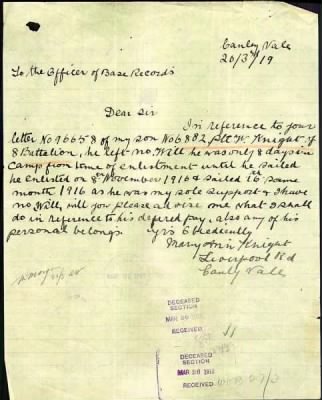 Canly Vale
20/3rd/19
To the Officer of Base Records
Dear Sir
In reference to your
letter No 96658 of my son No 6802 Pte W. Knight of
8 Battalion, he left no Will he was only 8 days in
Camp from time of enlistment until he sailed
he enlisted on 8th November 1916 & sailed 16th same
month 1916 as he was my sole support & I have
no Will, will you please advise me what I shall
do in reference to his defired pay, also any of his
personal belongs yrs Obediently
Mary Ann Knight
Liverpool Rd
Canly Vale
DECEASED
SECTION
MAR
RECEIVED
DECEASED
SECTION
MAR 28 1919
RECEIVED